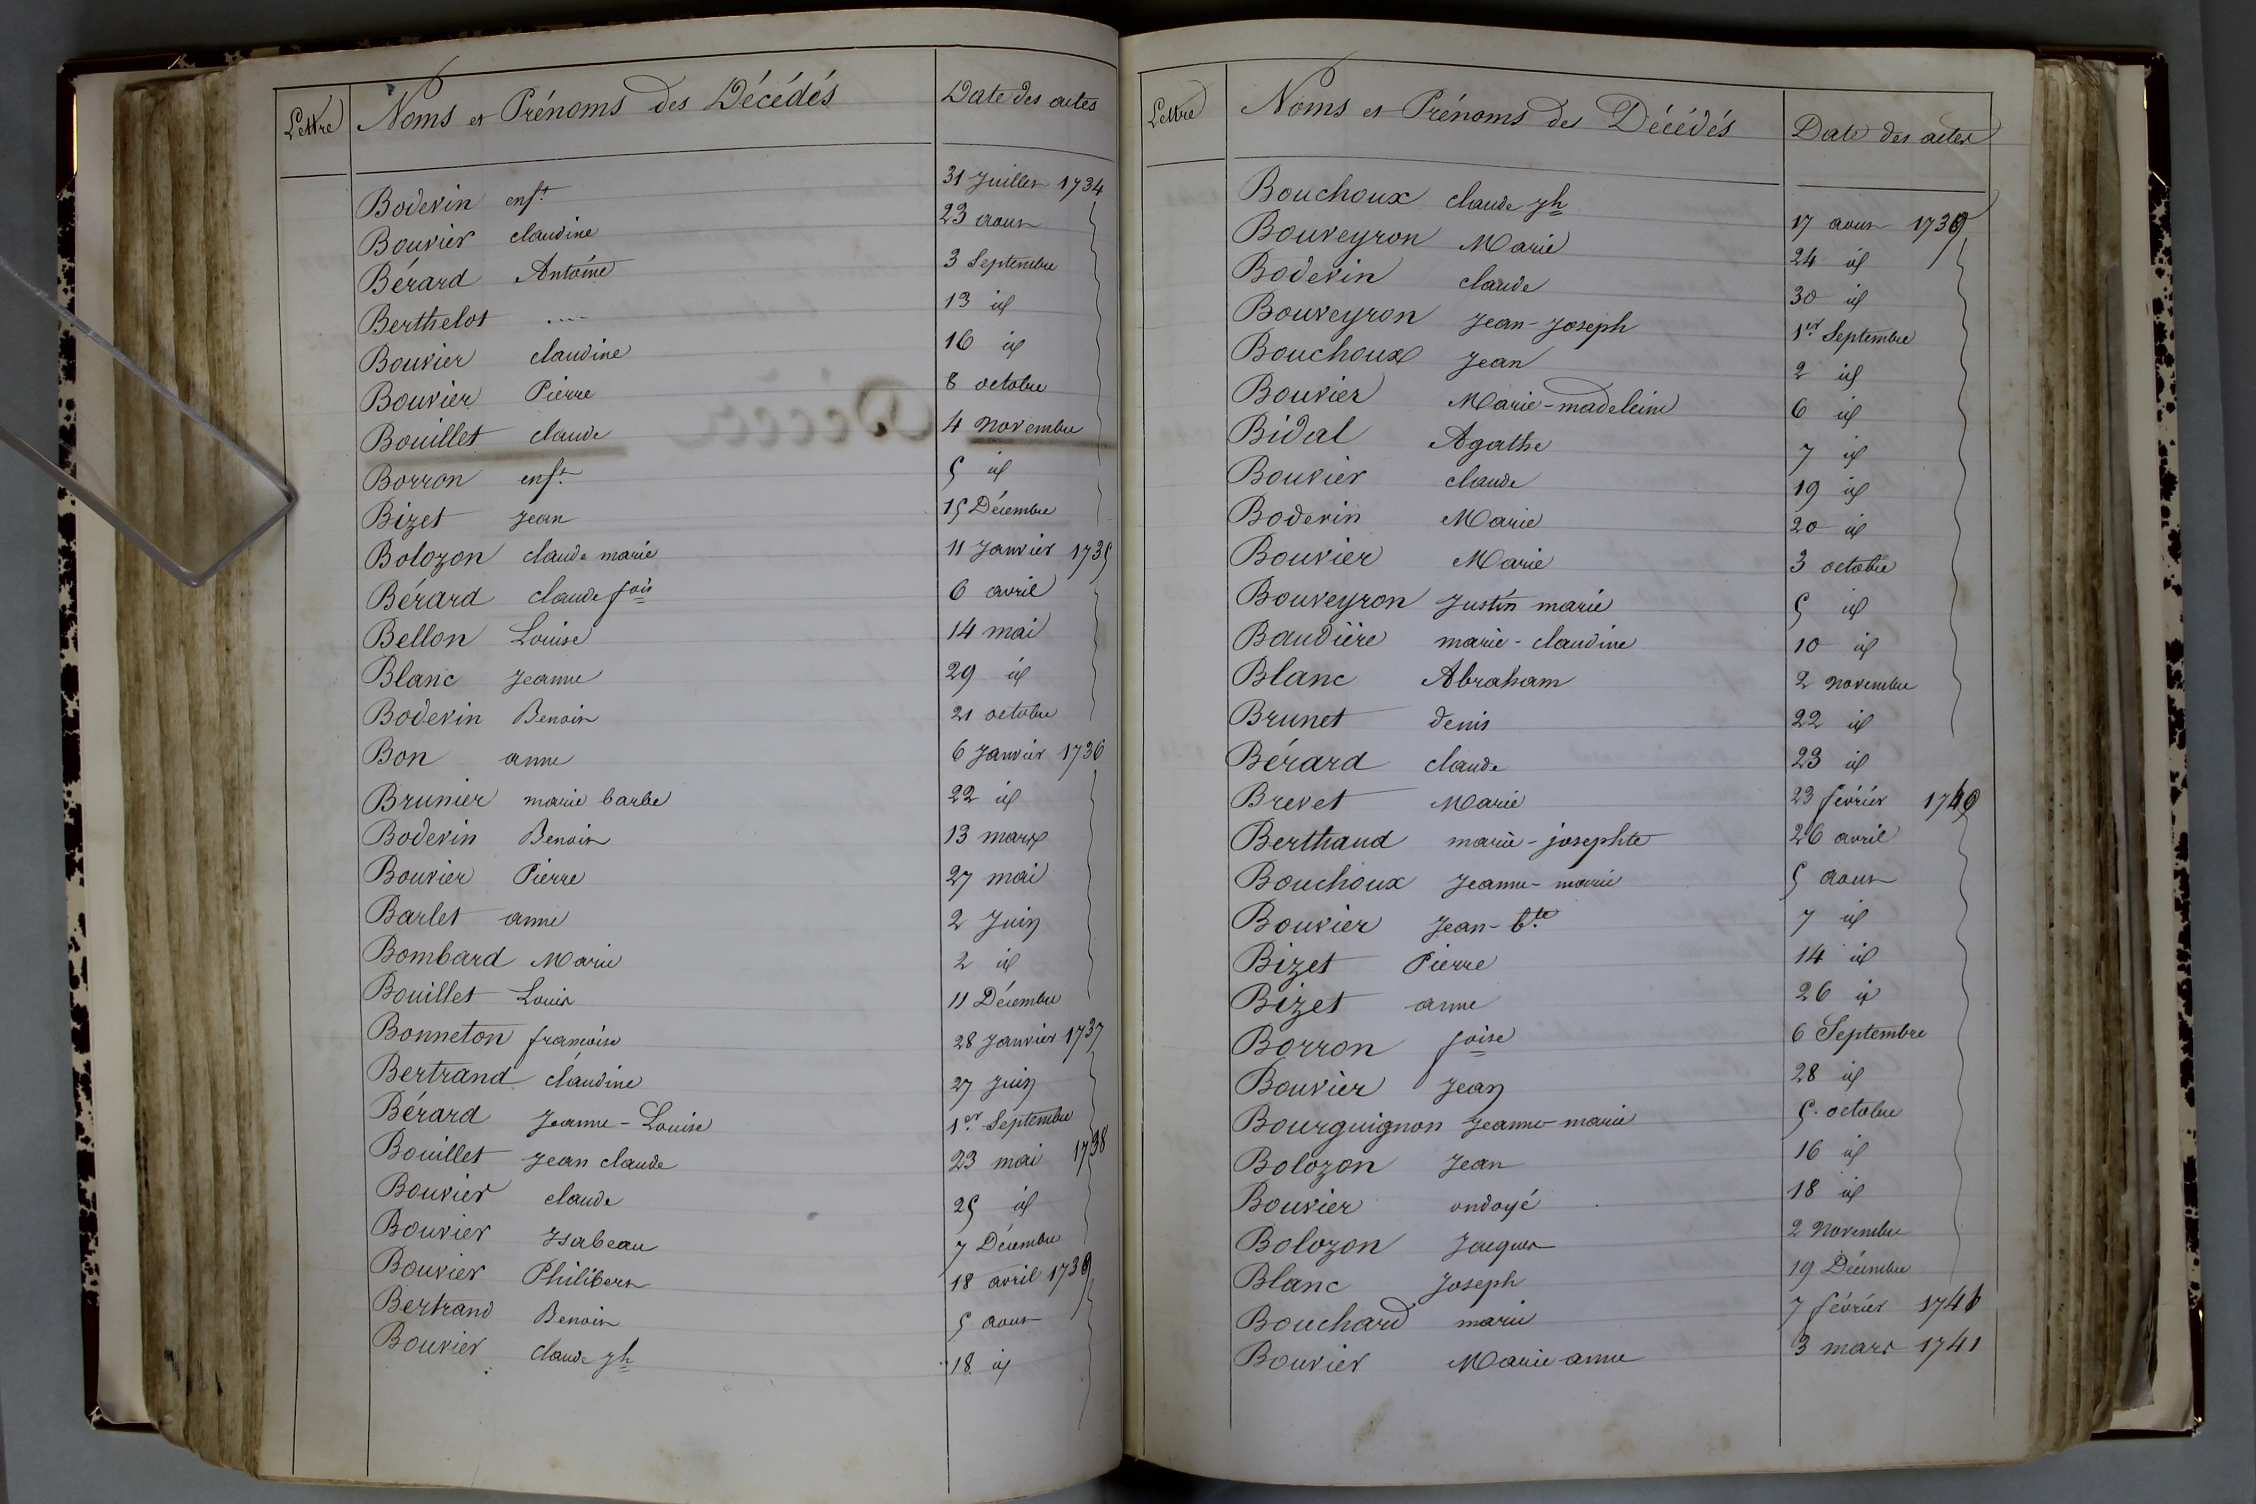 Lettre Noms et Prénoms des Décédés Date des actes
Bodevin enft 31 Juillet 1734
Bouvier claudine 23 aout
Bérard Antoine 3 Septembre
Berthelot .... 13 id
Bouvier claudine 16 id
Bouvier Pierre 8 octobre
Bouillet claude 4 Novembre
Borron enft 5 id
Bizet Jean 15 Décembre
Bolozon claude marie 11 Janvier 1735
Bérard claude fois 6 avril
Bellon Louise 14 mai
Blanc Jeanne 29 id
Bodevin Benoit 21 octobre
Bon anne 6 Janvier 1736
Brunier marie barbe 22 id
Bodevin Benoit 13 mars
Bouvier Pierre 27 mai
Barlet anne 2 Juin
Bombard Marie 2 id
Bouillet Louis 11 Décembre
Bonneton francoise 28 Janvier 1737
Bertrand claudine 27 Juin
Bérard Jeanne-Louise 1er Septembre
Bouillet Jean claude 23 mai 1738
Bouvier claude 25 id
Bouvier Isabeau 7 Décembre
Bouvier Philibert 18 avril 1739
Bertrand Benoit 5 aout
Bouvier claude jh 18 id
Lettre Noms et Prénoms des Décédés Date des actes
Bouchoux claude jh 17 aout 1739
Bouveyron Marie 24 id
Bodevin claude 30 id
Bouveyron Jean-Joseph 1er Septembre
Bouchoux Jean 2 id
Bouvier Marie-madeleine 6 id
Bidal Agathe 7 id
Bouvier claude 19 id
Bodevin Marie 20 id
Bouvier Marie 3 octobre
Bouveyron Justin marie 5 id
Baudière marie-claudine 10 id
Blanc Abraham 2 Novembre
Brunet denis 22 id
Bérard claude 23 id
Brevet Marie 23 février 1740
Berthaud marie-josephte 26 avril
Bouchoux Jeanne-marie 5 aout
Bouvier Jean-bte 7 id
Bizet Pierre 14 id
Bizet anne 26 id
Borron foise 6 Septembre
Bouvier Jean 28 id
Bourguignon Jeanne-marie 5 octobre
Bolozon Jean 16 id
Bouvier ondoyé 18 id
Bolozon Jacques 2 Novembre
Blanc Joseph 19 Décembre
Bouchard marie 7 février 1741
Bouvier Marie anne 3 mars 1741